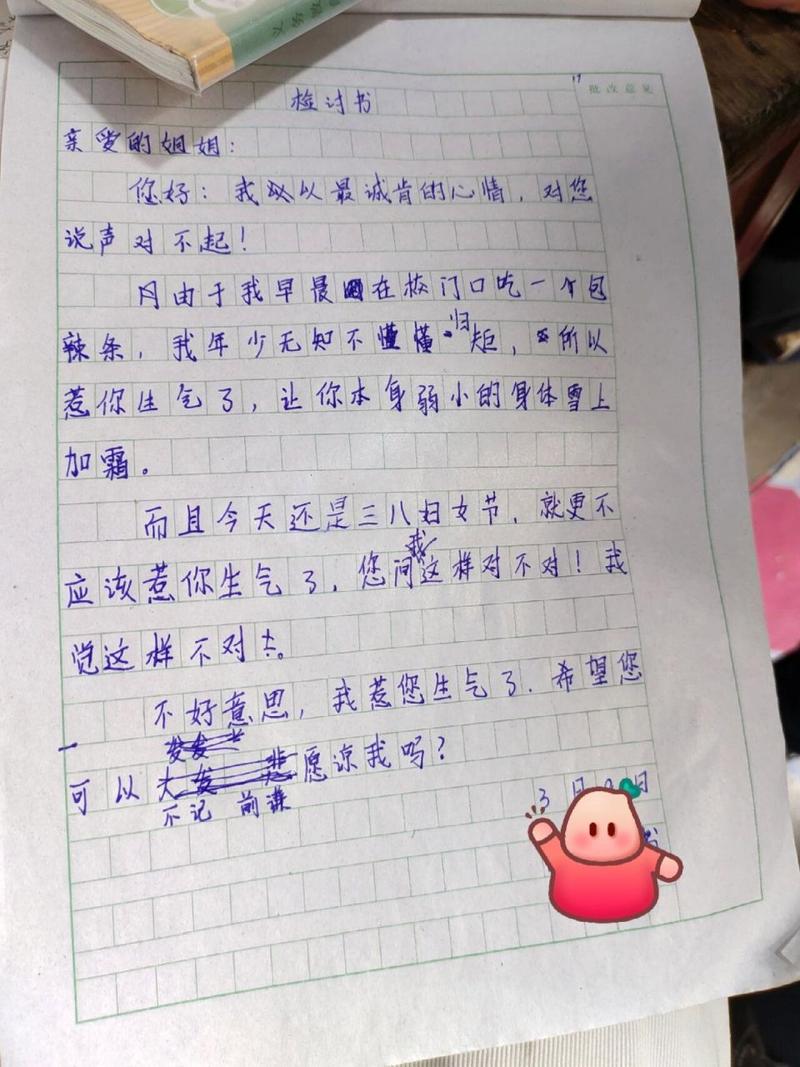 义务教
批改意见
检讨书
亲爱的姐姐：
您好：我以以最诚肯的心情，对您
说声对不起！
由于我早晨在校门口吃一个包
辣条，我年少无知不懂懂归矩，所以
惹你生气了，让你本身弱小的身体雪上
加霜。
而且今天还是三八妇女节，就更不
应该惹你生气了，您问我这样对不对！我
觉这样不对
不好意思，我惹您生气了．希望您
可以不记前谦愿谅我吗？
3月 日